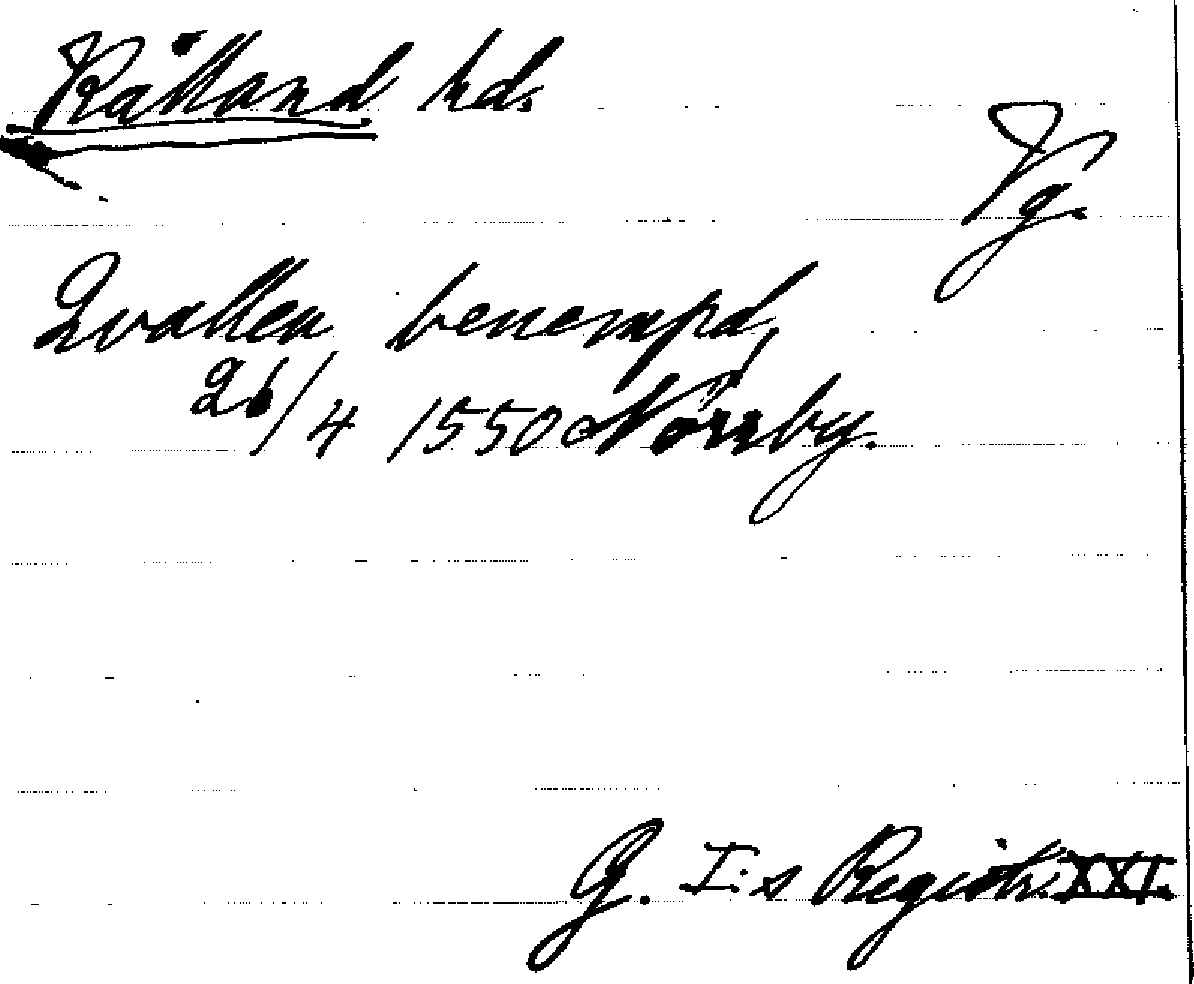 Kålland hd.
Vg.
Qvallen benempd,
26/4 1550 Norrby.
G. I:s Registr. XXI.